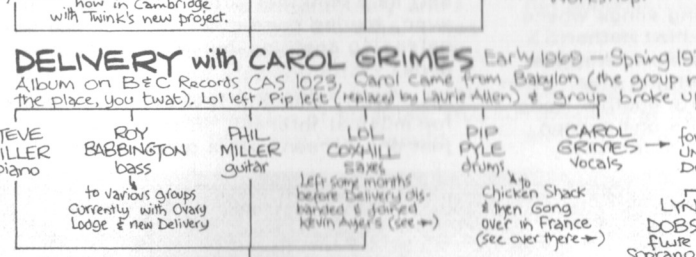 now in Cambridge
with Twink's new project.
DELIVERY with CAROL GRIMES Early 1969 – Spring 19
Album on B&C Records CAS 1023. Carol came from Babylon (the group
the place, you twat). Lol left, Pip left (replaced by Laurie Allen) & group broke u
TEVE
ILLER
piano
ROY
BABBINGTON
bass
to various groups
Currently with Ovary
Lodge & new Delivery
PHIL
MILLER
guitar
LOL
COXHILL
saxes
Left some months
before Delivery dis-
banded & joined
Kevin Ayers (see →)
PIP
PYLE
drums
to
Chicken Shack
& then Gong
over in France
(see over there →)
CAROL
GRIMES →
vocals
fo
UN
D
LYN
DOBS
flute
Soprano